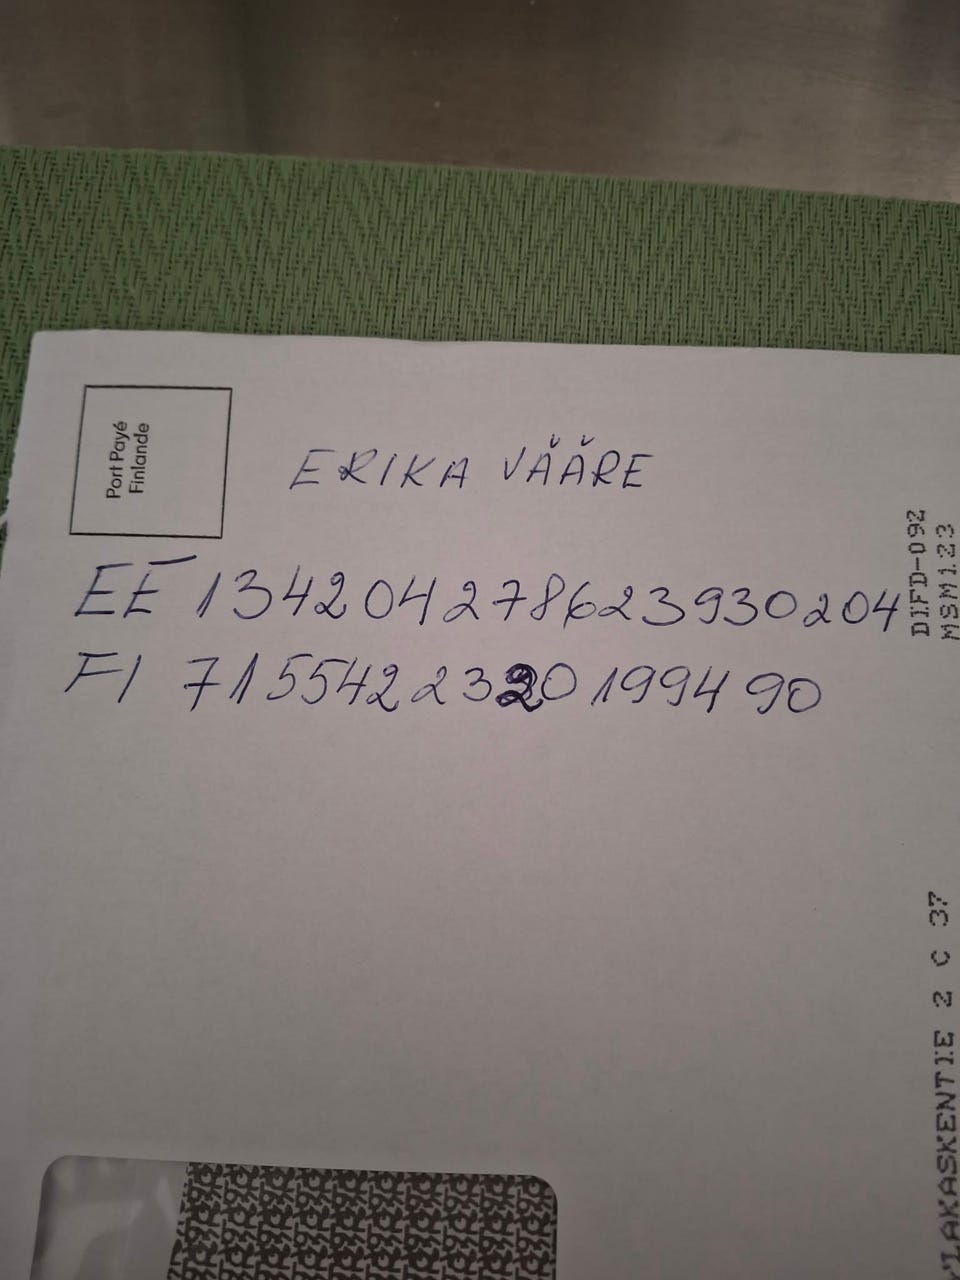 Port Payé
Finlande
ERIKA VÄÄRE
EE 134204278623930204
FI 7155422320199490
DIFD-092
MSM123
LAKASKENTIE 2 C 37